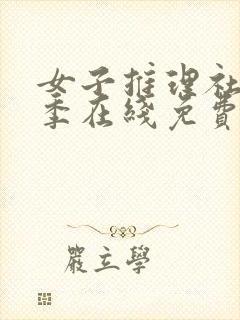 女子推理社
季在綫免費
嚴立學